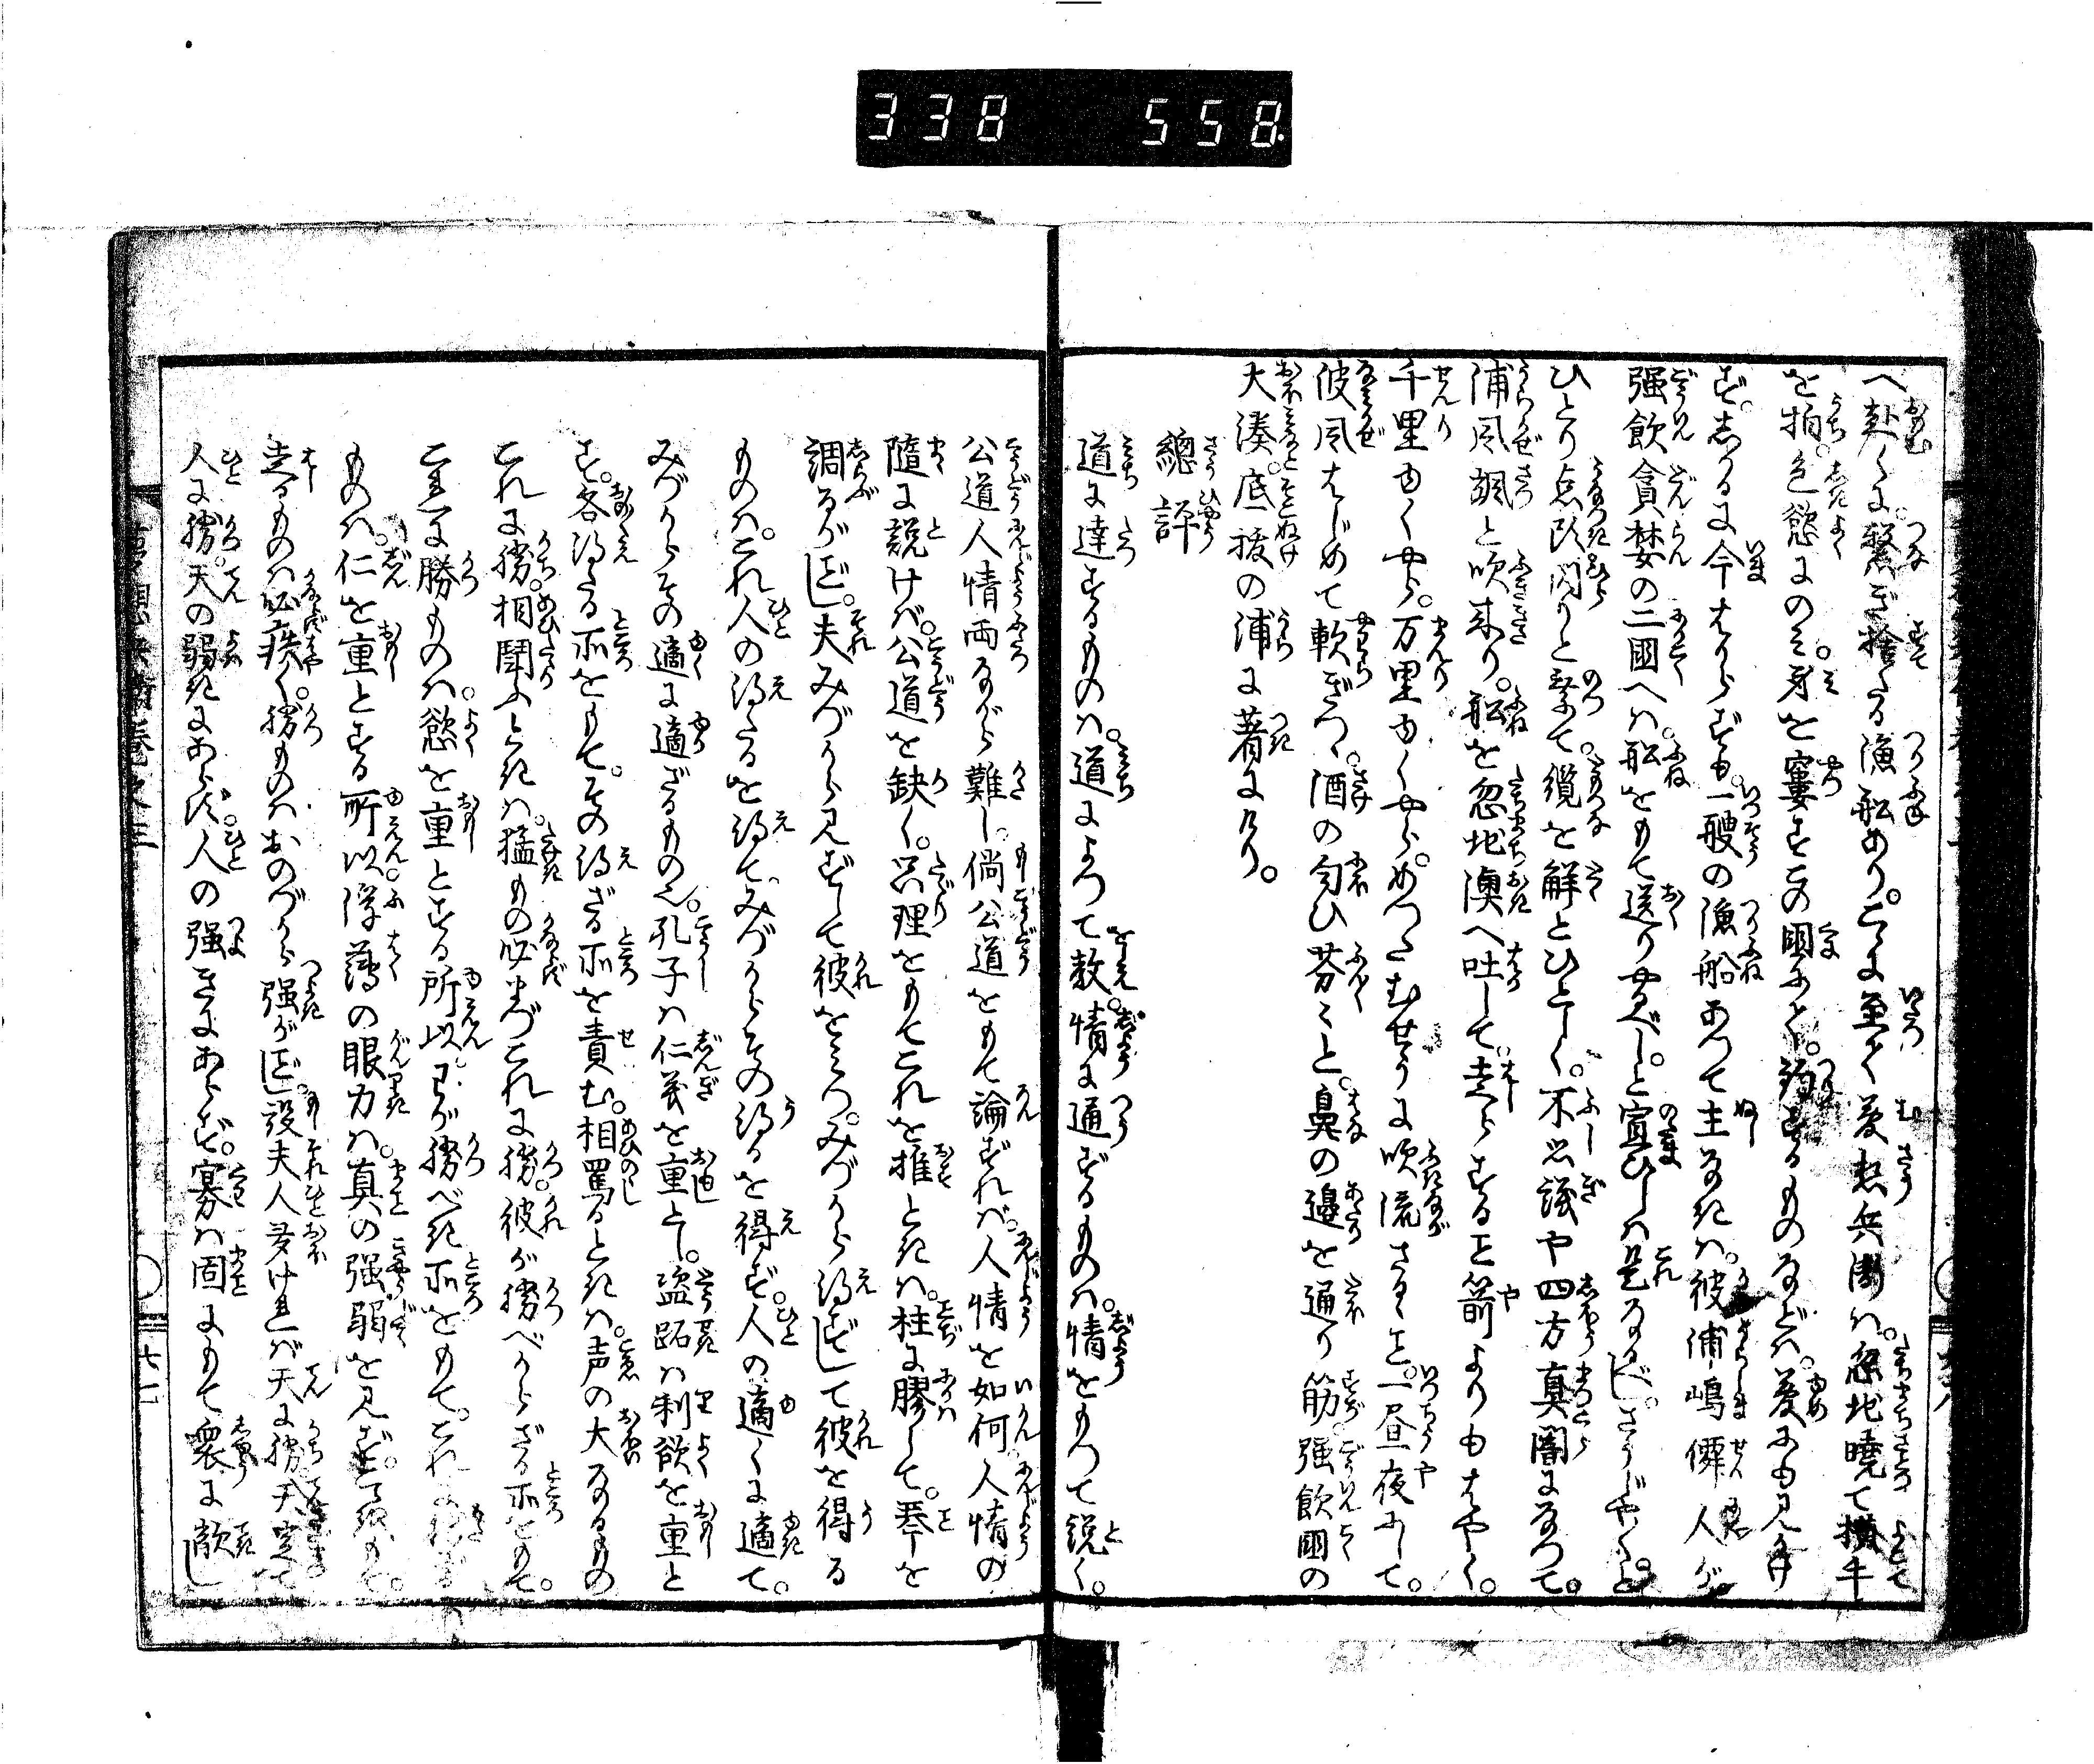 338 558
へ赴くに。繋ぎ捨たる漁船あり。こゝに至て夢想兵衛ハ。忽地暁て横手
を拍。色慾にのミ。身を窶すこの国にて。釣するものなどハ。夢にも見かけ
ず。しかるに今はからずも。一艘の漁船あつて主なきハ。彼浦嶋僊人が
強飲貪婪の二国へハ。船をもて送りやるべし。と宣ひしハ是なるべし。さうじや〳〵と。
ひとり点頭閃りと乗て。纜を解とひとしく。不思議や四方真闇になつて。
浦風颯と吹来り。船を忽地澳へ吐して。走らすること箭よりもはやく。
千里ゆくやら。万里ゆくやら。めつたむせうに吹流さるゝこと。一昼夜にして。
波風はじめて軟ぎつゝ。酒の匂ひ芬々と。鼻の邊を通り筋。強飲国の
大湊。底抜の浦に著にけり。
總評
道に達するものハ。道によつて教。情に通ずるものハ。情をもつて説く。
公道人情両ながら難し。倘公道をもて論ずれバ。人情を如何。人情の
隨に説けバ。公道を缺く。只理をもてこれを推ときハ。柱に膠して。琴を
調るがごとし。夫みづから見ずして彼を見。みづから得ずして彼を得る
ものハ。これ人の得たるを得て。みづからその得るを得ず。人の適くに適て。
みづからその適に適ざるもの也。孔子ハ仁義を重とし。盗跖ハ利欲を重と
す。各得たる所をもて。その得ざる所を責む。相罵るときハ。声の大なるもの
これに勝。相闘ふときハ。猛もの必まづこれに勝。彼が勝べからざる所をもて。
これに勝ものハ。慾を重とする所以。わが勝べき所をもて。これに
ものハ。仁を重とする所以。浮薄の眼力ハ。真の強弱を見ず。
走るものハ必疾く。勝ものハおのづから強がごとし。設夫人多けれバ天に勝。天定て
人に勝。天の弱きにあらず。人の強きにあらず。寡ハ固にもて衆に敵し